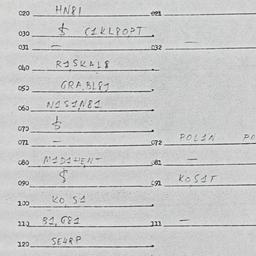 020 HN81 021
030 $ C1KL8OPT
031 — 032 —
040 R1SKAL8
050 GRA,BL81
060 N1S1N81
070 $
071 — 072 POL1N PO
080 M1D1HENT 081 —
090 $ 091 KOS1T
100 KO, S1
110 B1, G81 111 —
120 SE48P